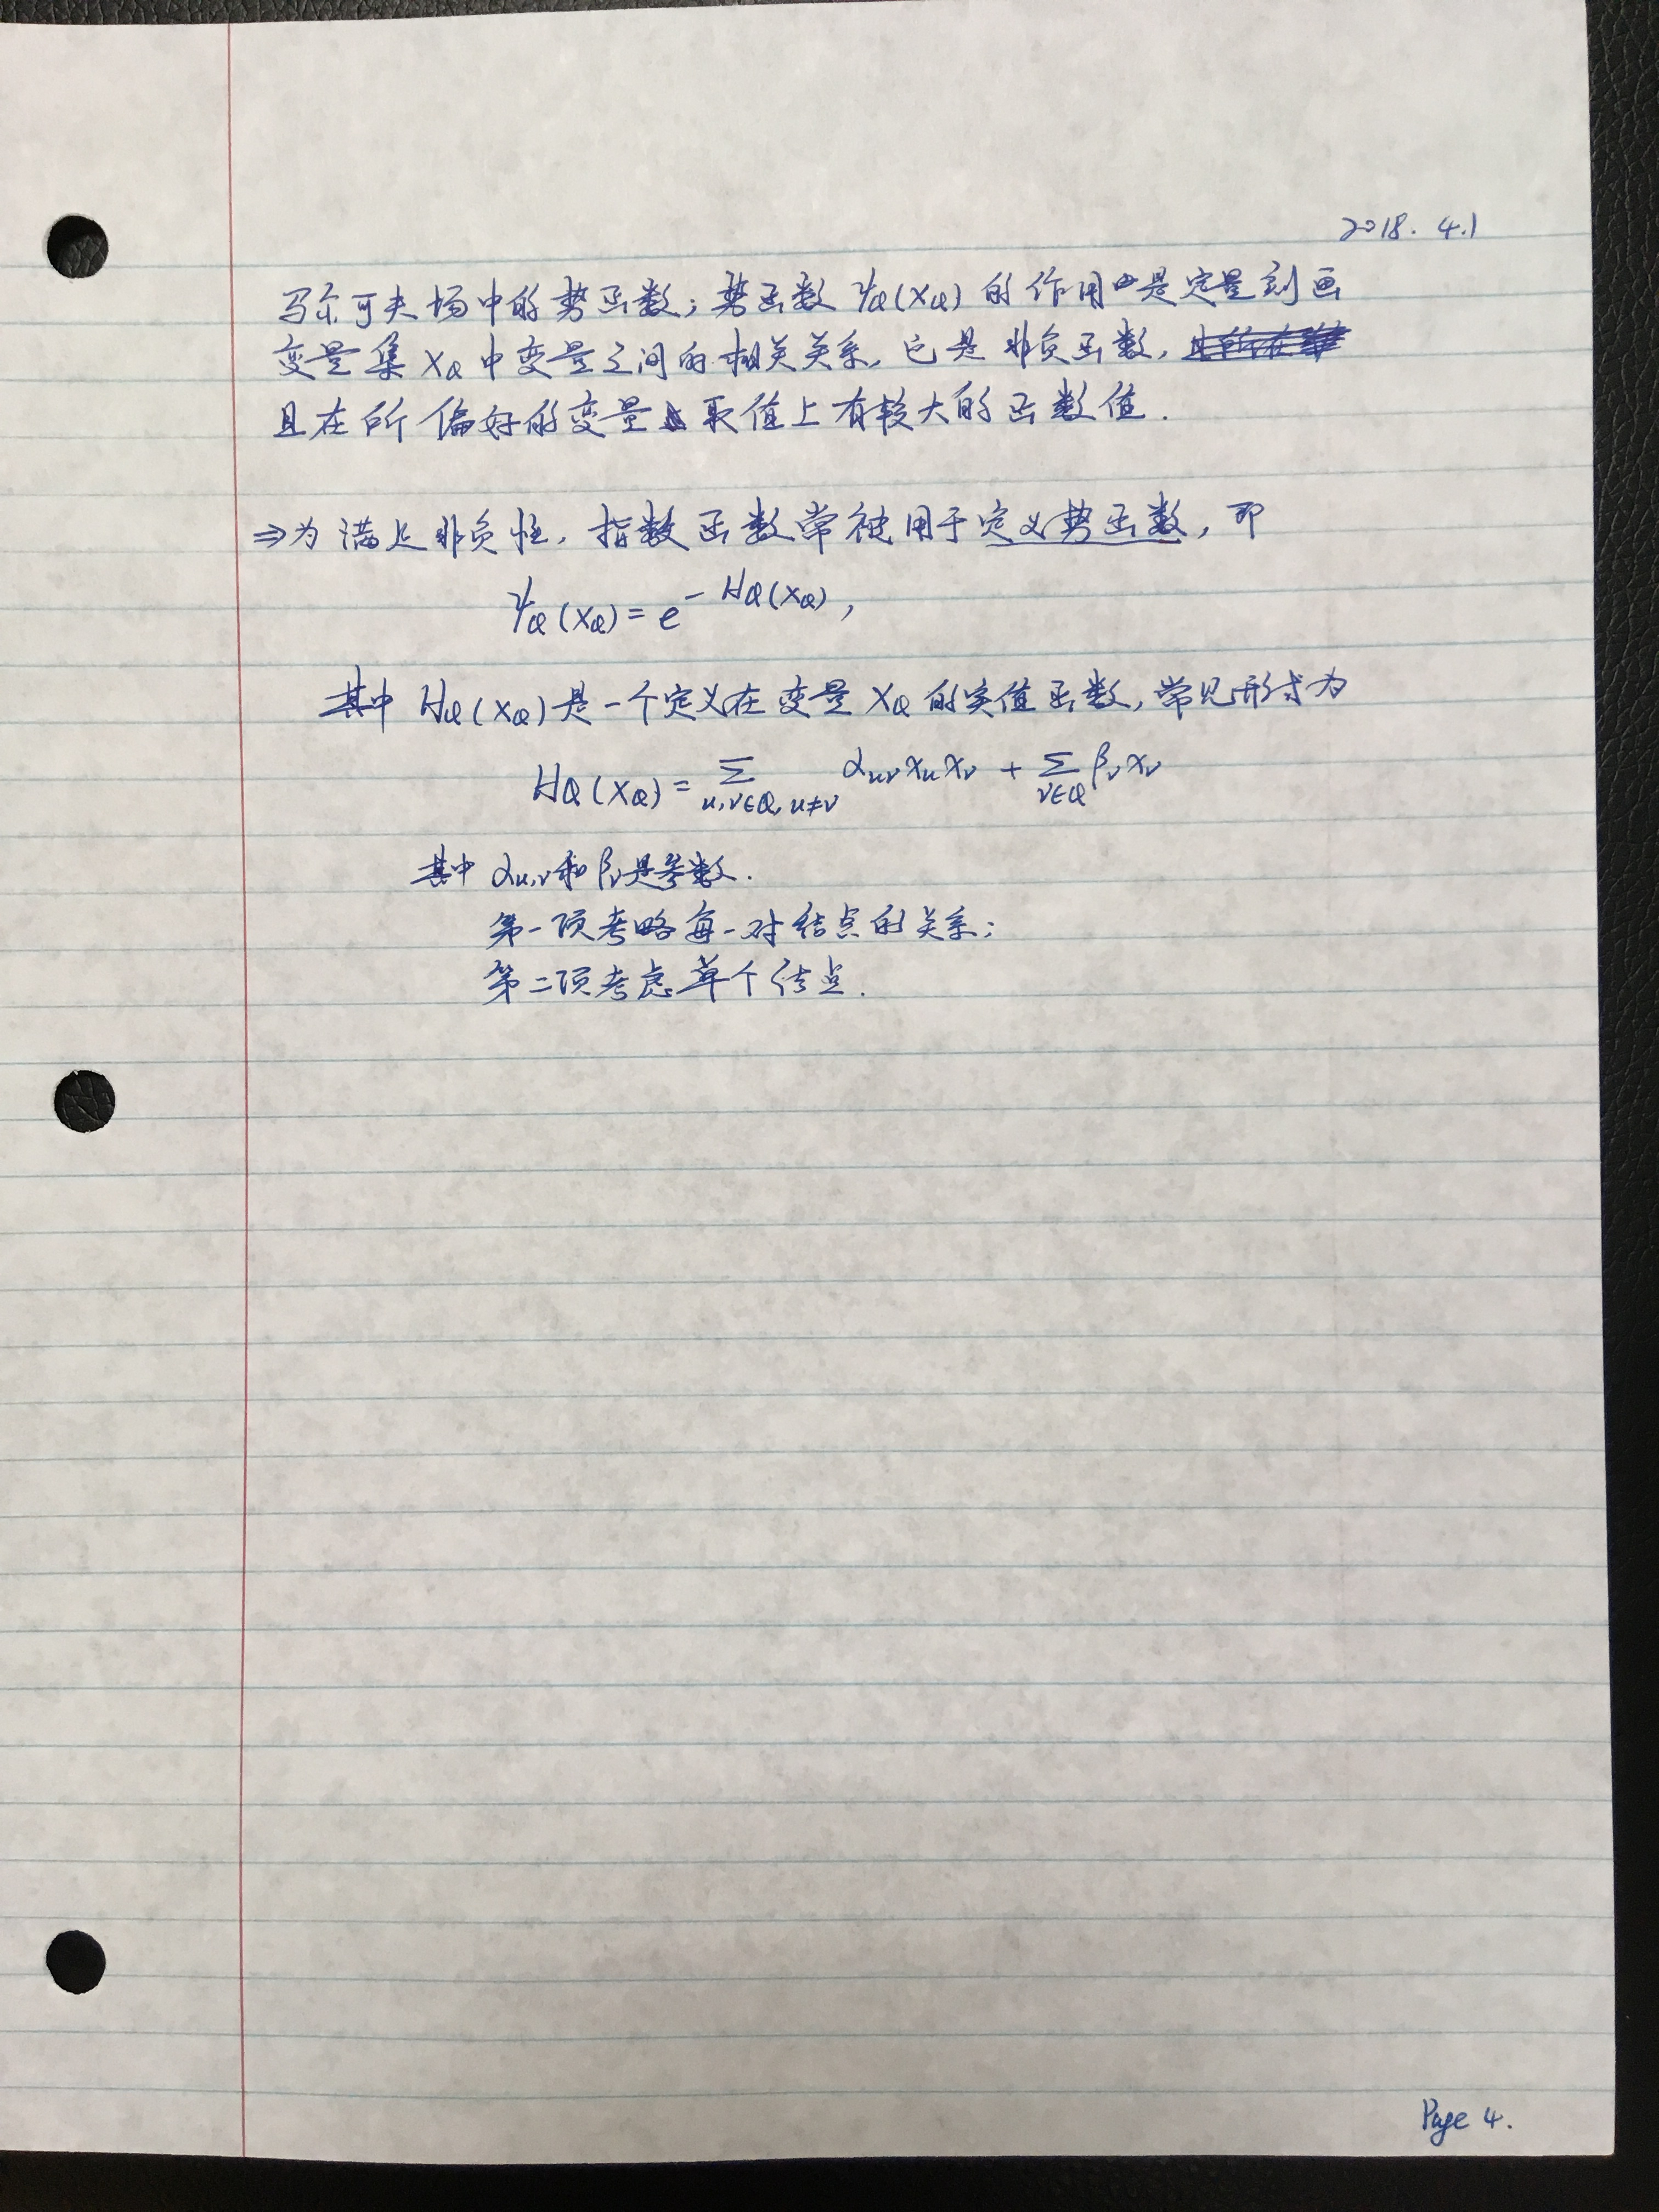 2018. 4.1
马尔可夫场中的势函数; 势函数 ψQ(XQ) 的作用是定量刻画
变量集 XQ 中变量之间的相关关系, 它是非负函数,
且在所偏好的变量取值上有较大的函数值.
⇒为满足非负性, 指数函数常被用于定义势函数, 即
ψQ(XQ) = e^{-HQ(XQ)},
其中 HQ(XQ) 是一个定义在变量 XQ 的实值函数, 常见形式为
HQ(XQ) = Σ_{u,v∈Q, u≠v} αuv xu xv + Σ_{v∈Q} βv xv
其中 αu,v 和 βv 是参数.
第一项考略每一对结点的关系;
第二项考虑单个结点.
Page 4.